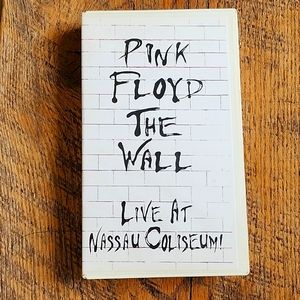 PINK
FLOYD
THE
WALL
LIVE AT
NASSAU COLISEUM!